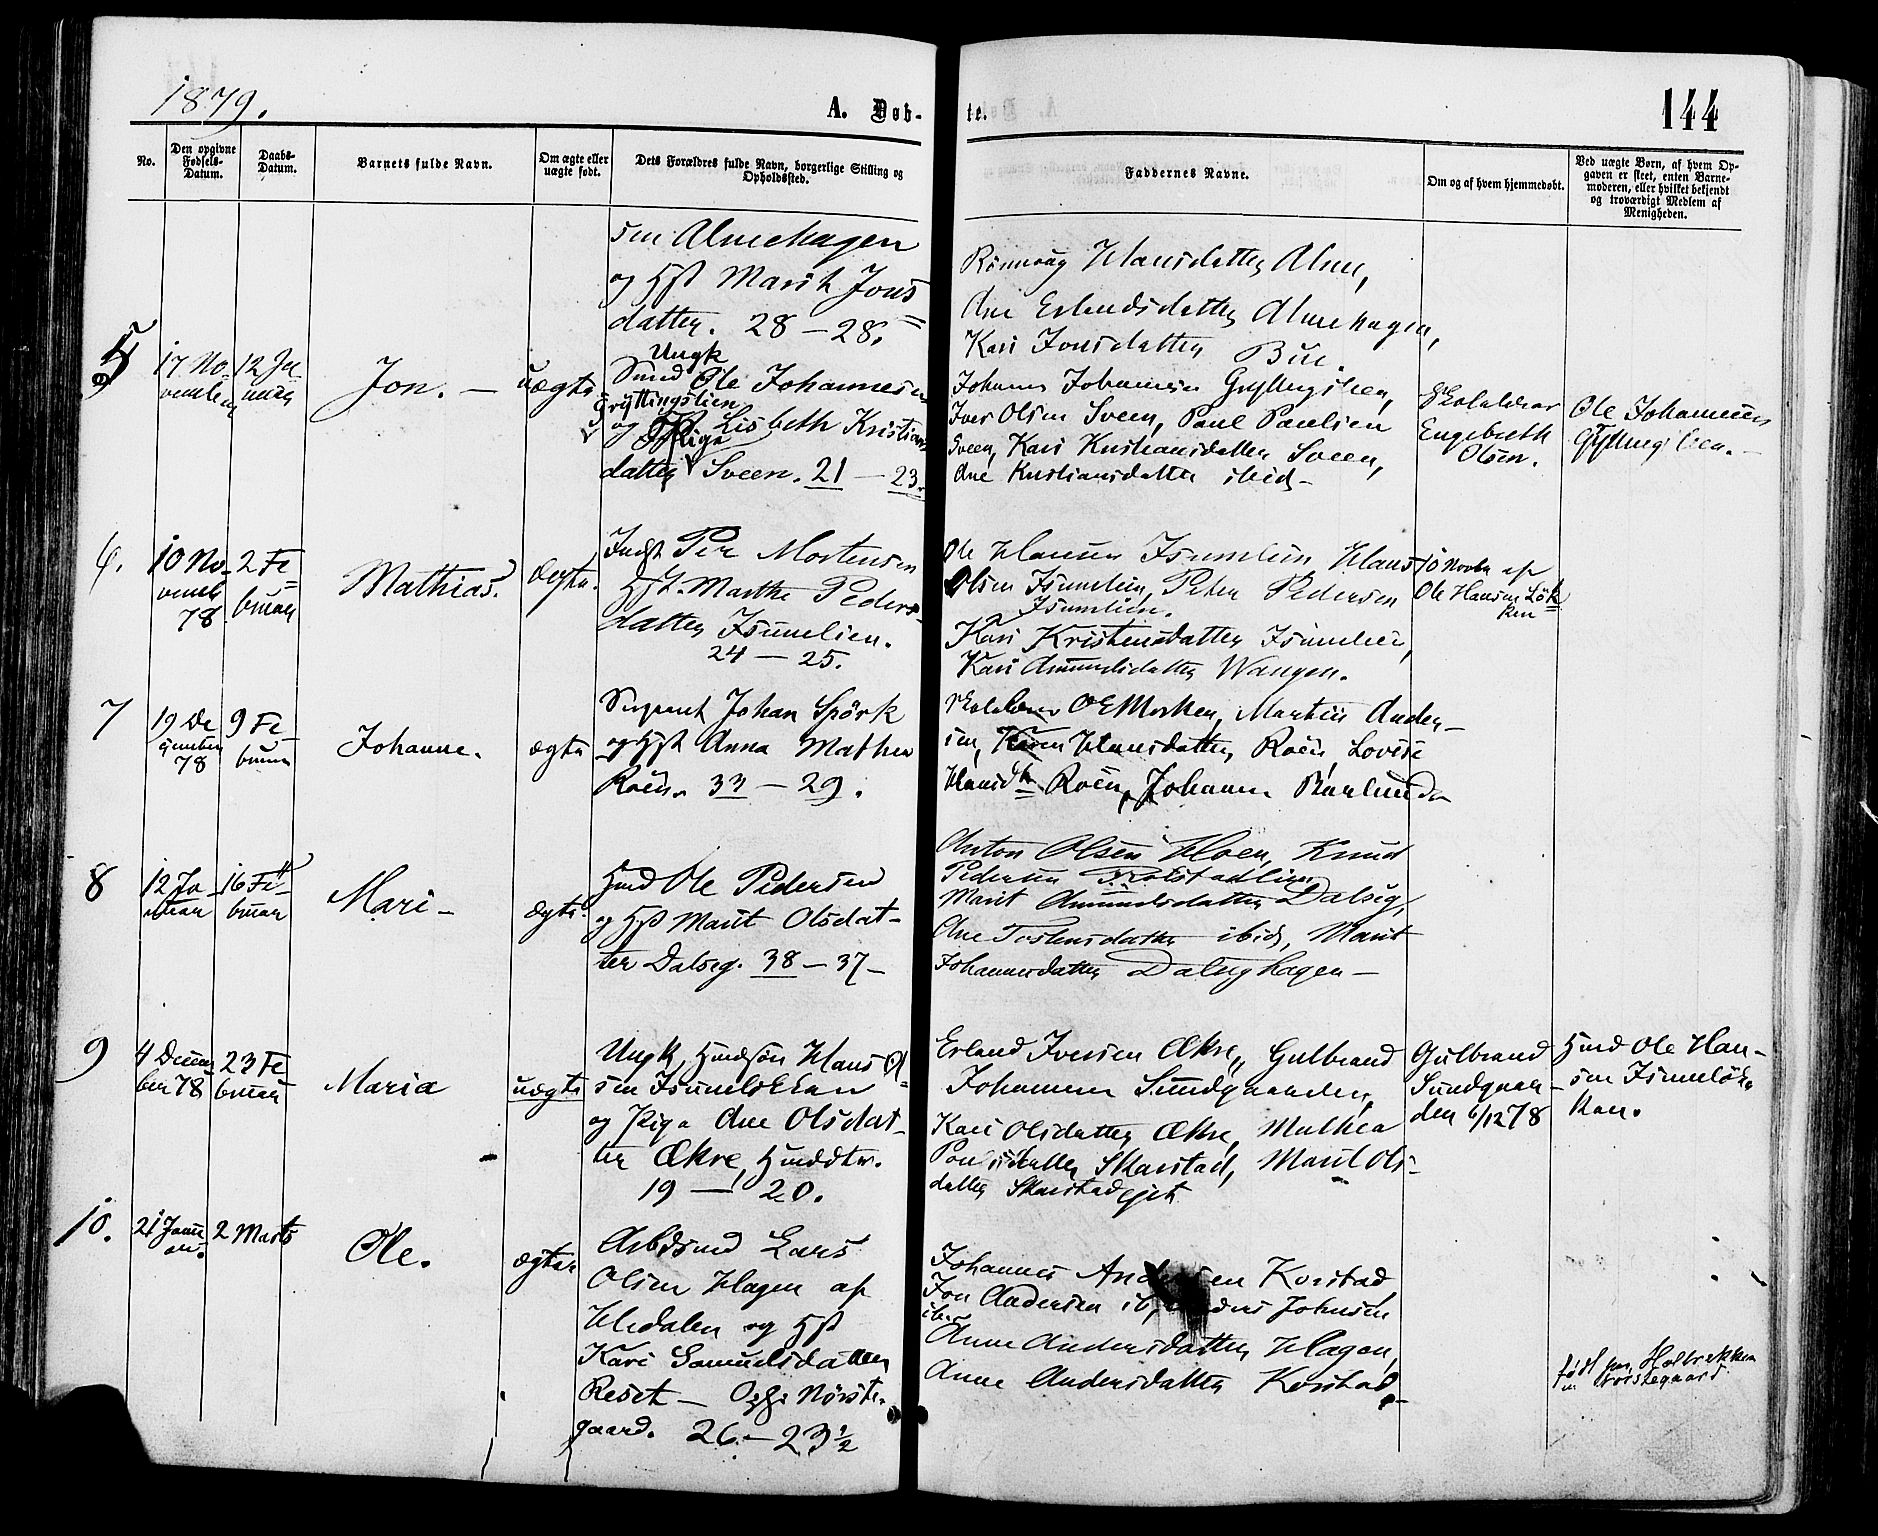 1879.
A. Døb-
te.
144
No.
Den opgivne
Fødsels-
Datum.
Daabs-
Datum.
Barnets fulde Navn.
Om ægte eller
uægte født.
Dets Forældres fulde Navn, borgerlige Stilling og
Opholdssted.
Faddernes Navne.
Om og af hvem hjemmedøbt.
Ved uægte Børn, af hvem Op-
gaven er skeet, enten Barne-
moderen, eller hvilket bekjendt
og troværdigt Medlem af
Menigheden.
sen Almehagen
og Hst Marit Jons=
datter. 28 – 28.
Hansdatter Alme,
Ane Erlendsdatter Almehagen,
Kari Jonsdatter Bue.
5
17 No-
vember
12 Ja
nuar
Jon. –
uægte
Ungk
Smed Ole Johannesen
Gryttingslien
og Pige Lisbeth Kristians
datter Sveen. 21 – 23.
Johannes Johannesen Gryttingslien,
Iver Olsen Sveen, Paul Paulsen
Sveen, Kari Kristiansdatter Sveen,
Ane Kristiansdatter ibid –
Skolelærer
Engebreth
Olsen.
Ole Johannesen
Gryttingslien. –
6.
10 No-
vemb
78
2 Fe=
bruar
Mathias.
Ægte.
Indst Per Mortensen
Hst. Marthe Peders-
datter Isumlien.
24 – 25.
Ole Hansen Isumlien, Hans
Olsen Isumlien, Peter Pedersen
Isumlien.
Kari Kristensdatter Isumlien,
Kari Amundsdatter Wangen.
10 Novbr af
Ole Hansen Løk=
ken
7
19 De
cember
78
9 Fe-
bruar
Johanne.
ægte
Sergeant Johan Spörk
og Hst Anna Mathea
Roen. 33 – 29.
Skolelærer O E Morken, Martin Ander-
sen, Karen Hansdatter Roen, Lovise
Hansdtr Roen, Johanne
8
12 Ja-
nuar
16 Fe-
bruar
Mari –
Ægte.
Hmd Ole Pedersen
og Hst Marit Olsdat-
ter Dalseg. 38 – 37 –
Anton Olsen Hoen, Knud
Pedersen
Marit Amundsdatter Dalseg,
Ane Tostensdatter ibid, Marit
Johannesdatter Dalseghagen –
9
4 Decem
ber 78
23 Fe
bruar
Maria
uægte
Ungk, Hmdsøn Hans Ol-
sen Isumløkken
og Pige Ane Olsdat-
ter Ækre, Hmddtr.
19 – 20.
Erland Iversen Ækre, Gulbrand
Johannesen Sundgaarden,
Kari Olsdatter Ækre, Mathea
Poulsdatter Skarstad, Marit Ols-
datter Skarstadejet
Gulbrand
Sundgaar-
den 6/12 78
Hmd Ole Han-
sen Isumløk-
ken.
10.
21 Janu
ar.
2 Marts
Ole.
ægte.
Arbdsmd Lars
Olsen Hagen af
Hedalen og Hst
Kari Samuelsdatter
Reset – Nørste-
gaard. 26. – 23 ½
Johannes Andersen Korstad,
Jon Andersen ib, Anders Johnsen
ibid
Anne Andersdatter Hagen,
Anne Andersdatter Korstad –
født paa Holbrekken
u/ Nørstegaard